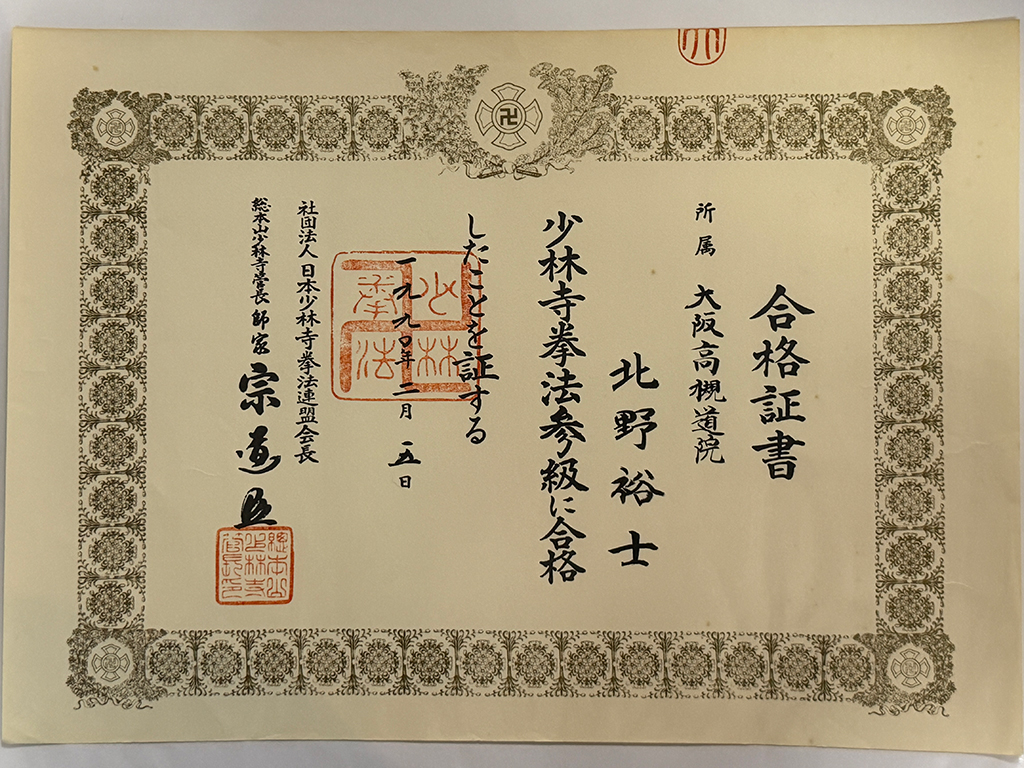 合格証書
所属 大阪高槻道院
北野裕士
少林寺拳法参級に合格
したことを証する
一九九〇年二月五日
社団法人 日本少林寺拳法連盟会長
総本山少林寺管長 師家 宗道臣
少林拳法
總本山少林寺管長印